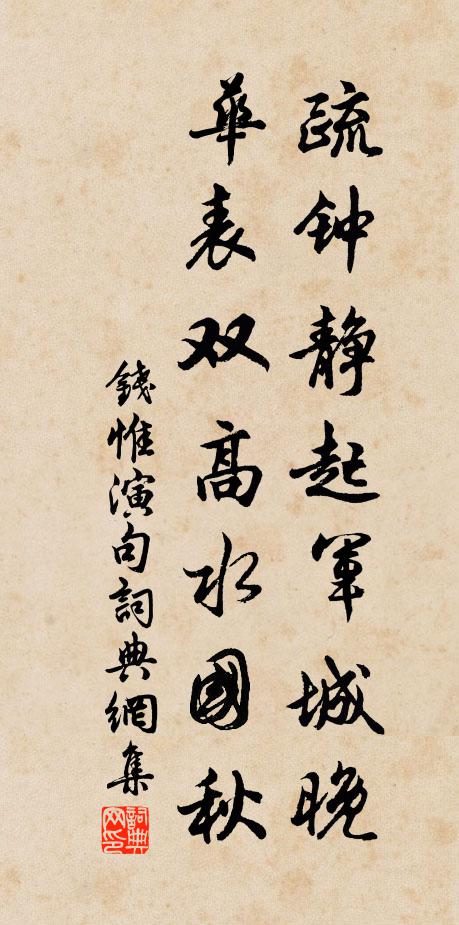 疏钟静起军城晚
華表双高水國秋
錢惟演句詞典網集
詞典网印